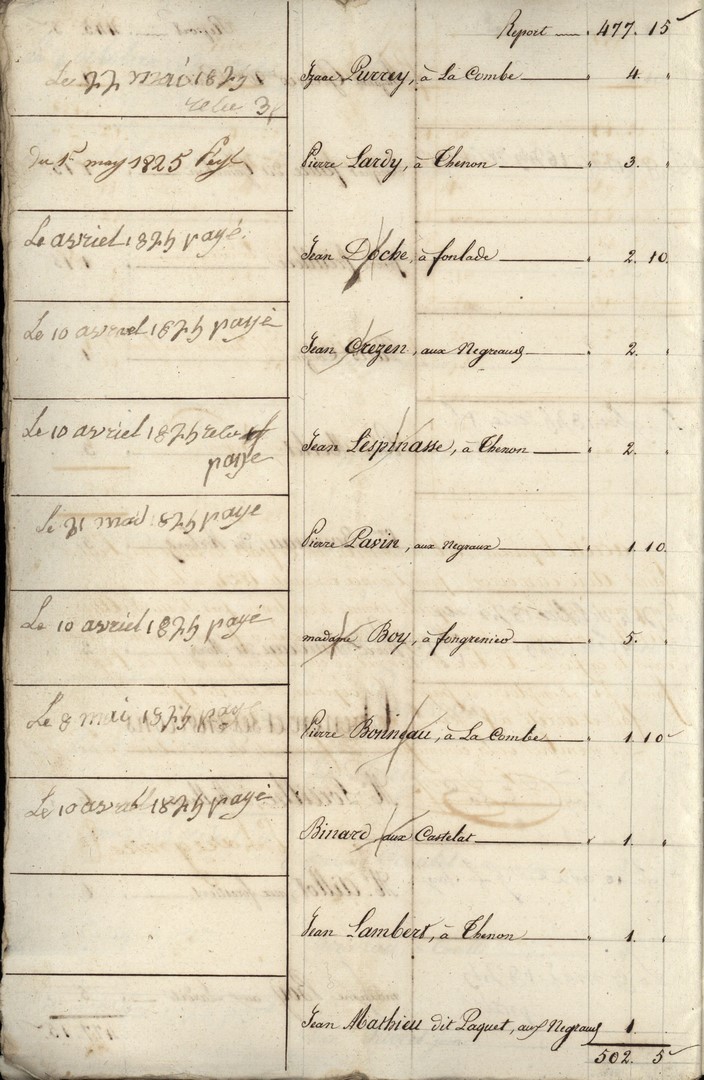 Report 477. 15
Le 22 mai 1825
Izaac Purrey, à La Combe 4. "
du 1er may 1825
Pierre Lardy, à Thenon 3. "
Le avriel 1825 payé
Jean Doche, à fonlade 2. 10
Le 10 avriel 1825 payé
Jean Crezen, aux Negreaux 2. "
Le 10 avriel 1825
paye
Jean Lespinasse, à Thenon 2. "
Le 21 mai 1825 paye
Pierre Pavin, aux Negraux 1. 10.
Le 10 avriel 1825 payé
madame Boy, à fongrenieo 5. "
Le 8 mai 1825
Pierre Bonneau, à La Combe 1. 10
Le 10 avral 1825 payé
Binard aux Castelat 1. "
Jean Lambert, à Thenon 1. "
Jean Mathieu dit Paquet, aux Negraux 1
502. 5